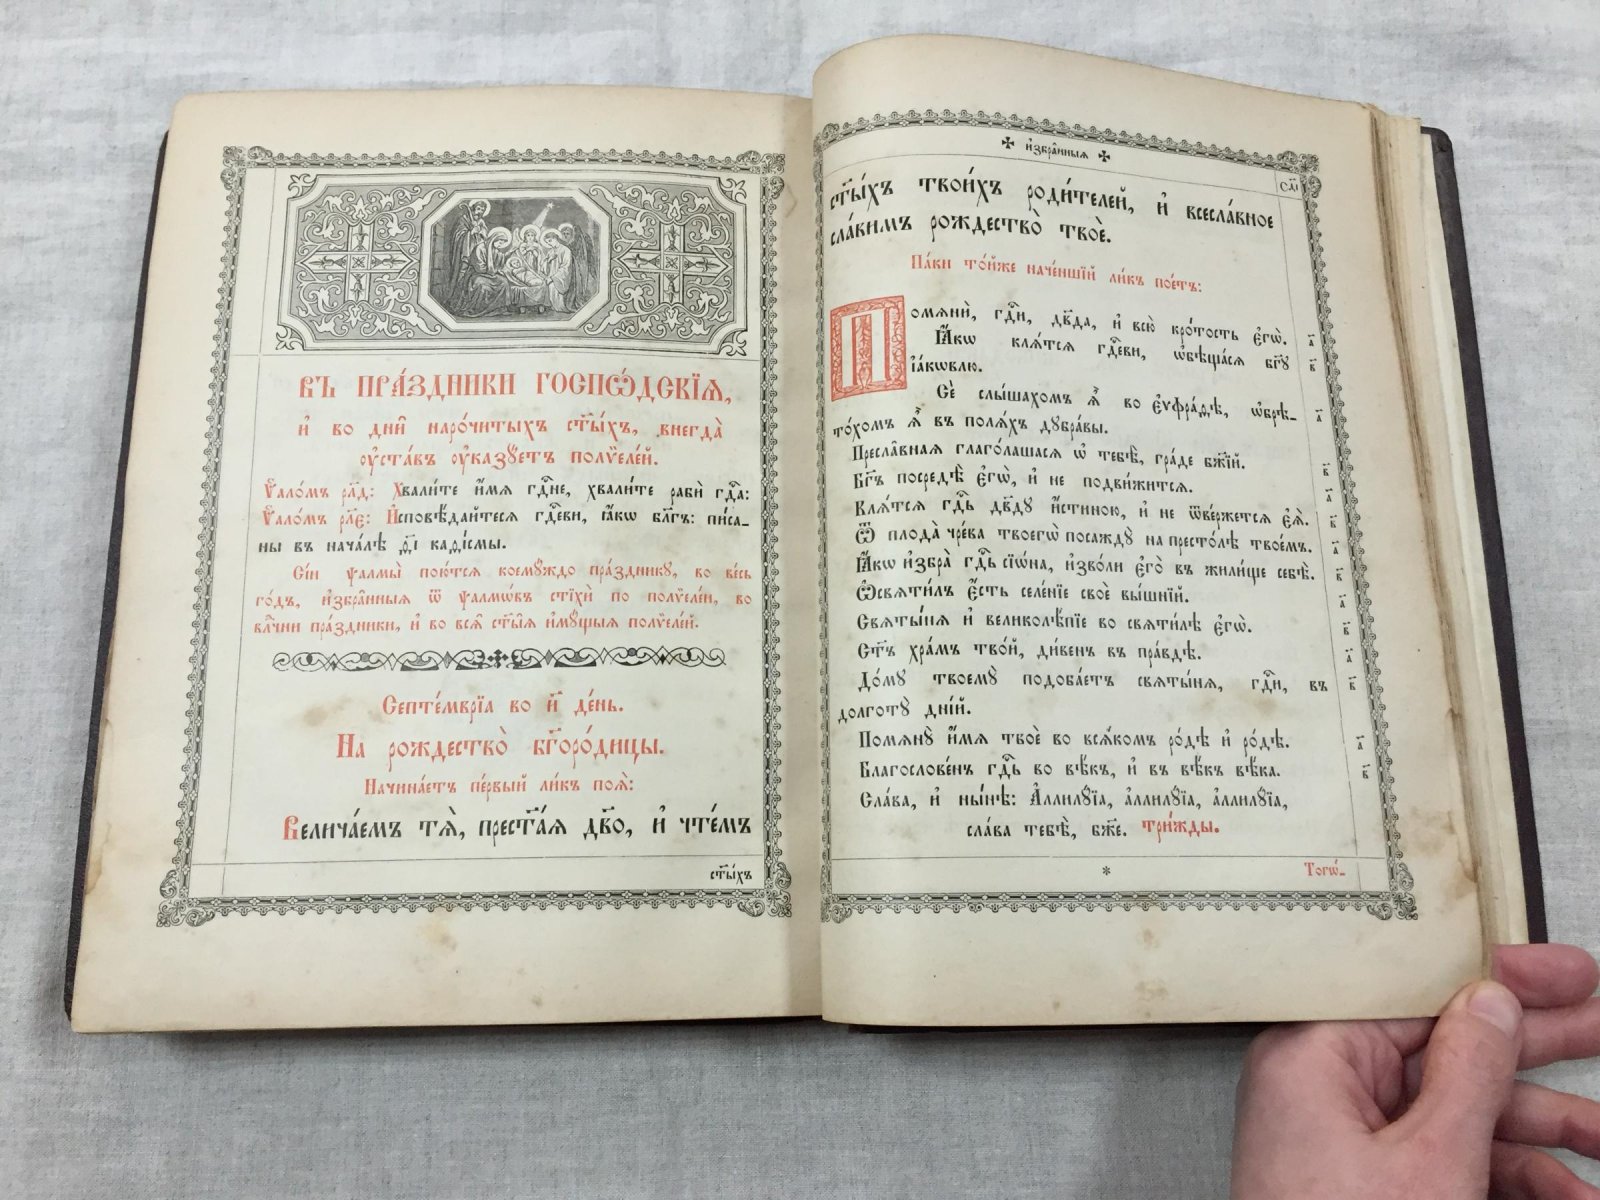 въ пра́здники госпѡ́дскїѧ,
и҆ во дни̑ наро́читыхъ ст҃ы́хъ, внегда̀
ᲂу҆ста́въ ᲂу҆казꙋ́етъ полѷеле́й.
Ѱало́мъ рл҃д: Хвали́те и҆́мѧ гдⷭ҇не, хвали́те рабѝ гдⷭ҇а:
Ѱало́мъ рл҃є: И҆сповѣ́дайтесѧ гдⷭ҇еви, ꙗ҆́кѡ бл҃гъ: пи́са-
ны въ нача́лѣ д҃і каѳі́смы.
Сі́и ѱалмы̀ пою́тсѧ коемꙋ́ждо пра́здникꙋ, во ве́сь
го́дъ, и҆збра̑нныѧ ѿ ѱалмѡ́въ стїхѝ по полѷеле́и, во
влⷣчни пра́здники, и҆ во всѧ̑ ст҃ы̑ѧ и҆мꙋ́щыѧ полѷеле́й.
Септе́мврїа во и҃ де́нь.
На рождество̀ бг҃оро́дицы.
Начина́етъ пе́рвый ли́къ поѧ̀:
Велича́емъ тѧ̀, прест҃а́ѧ дв҃о, и҆ чте́мъ
ст҃ы́хъ
и҆збра̑нныѧ
сл҃і
ст҃ы́хъ твои́хъ роди́телей, и҆ всесла́вное
сла́вимъ рождество̀ твоѐ.
Па́ки то́йже наче́ншїй ли́къ пое́тъ:
Помѧнѝ, гдⷭ҇и, дв҃да, и҆ всю̀ кро́тость є҆гѡ̀. а҃
Ꙗ҆́кѡ клѧ́тсѧ гдⷭ҇еви, ѡ҆бѣща́сѧ бг҃ꙋ в҃
і҆а́кѡвлю.
Сѐ слы́шахомъ ѧ҆̀ во є҆ѵфра́ѳѣ, ѡ҆брѣ- а҃
то́хомъ ѧ҆̀ въ полѧ́хъ дꙋбра́вы.
Пресла̑внаѧ глаго́лашасѧ ѡ҆ тебѣ̀, гра́де бж҃їй. в҃
Бг҃ъ посредѣ̀ є҆гѡ̀, и҆ не подви́житсѧ. а҃
Клѧ́тсѧ гдⷭ҇ь дв҃дꙋ и҆́стиною, и҆ не ѿве́ржетсѧ є҆ѧ̀. в҃
Ѿ плода̀ чре́ва твоегѡ̀ посаждꙋ̀ на престо́лѣ твое́мъ. а҃
Ꙗ҆́кѡ и҆збра̀ гдⷭ҇ь сїѡ́на, и҆зво́ли є҆го̀ въ жили́ще себѣ̀. в҃
Ѡ҆свѧти́лъ є҆́сть селе́нїе своѐ вы́шнїй. а҃
Свѧты́нѧ и҆ великолѣ́пїе во свѧти́лѣ є҆гѡ̀. в҃
Ст҃ъ хра́мъ тво́й, ди́венъ въ пра́вдѣ. а҃
До́мꙋ твоемꙋ̀ подоба́етъ свѧты́нѧ, гдⷭ҇и, въ в҃
долготꙋ̀ дні́й.
Помѧнꙋ̀ и҆́мѧ твоѐ во всѧ́комъ ро́дѣ и҆ ро́дѣ. а҃
Благослове́нъ гдⷭ҇ь во вѣ́къ, и҆ въ вѣ́къ вѣ́ка. в҃
Сла́ва, и҆ ны́нѣ: А҆ллилꙋ́їа, а҆ллилꙋ́їа, а҆ллилꙋ́їа,
сла́ва тебѣ̀, бж҃е. Три́жды.
Тогѡ́-